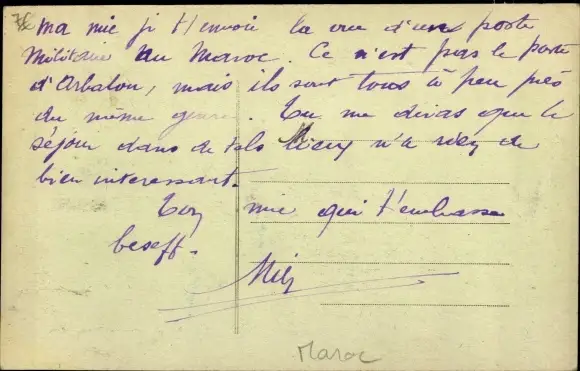 ma mie je t'envoie la vue d'un poste
militaire au Maroc. Ce n'est pas le poste
d'Arbalou, mais ils sont tous à peu près
du même genre. Tu me diras que le
séjour dans de tels lieux n'a rien de
bien interessant.
Ton mie qui t'embrasse
beseff.
Maroc